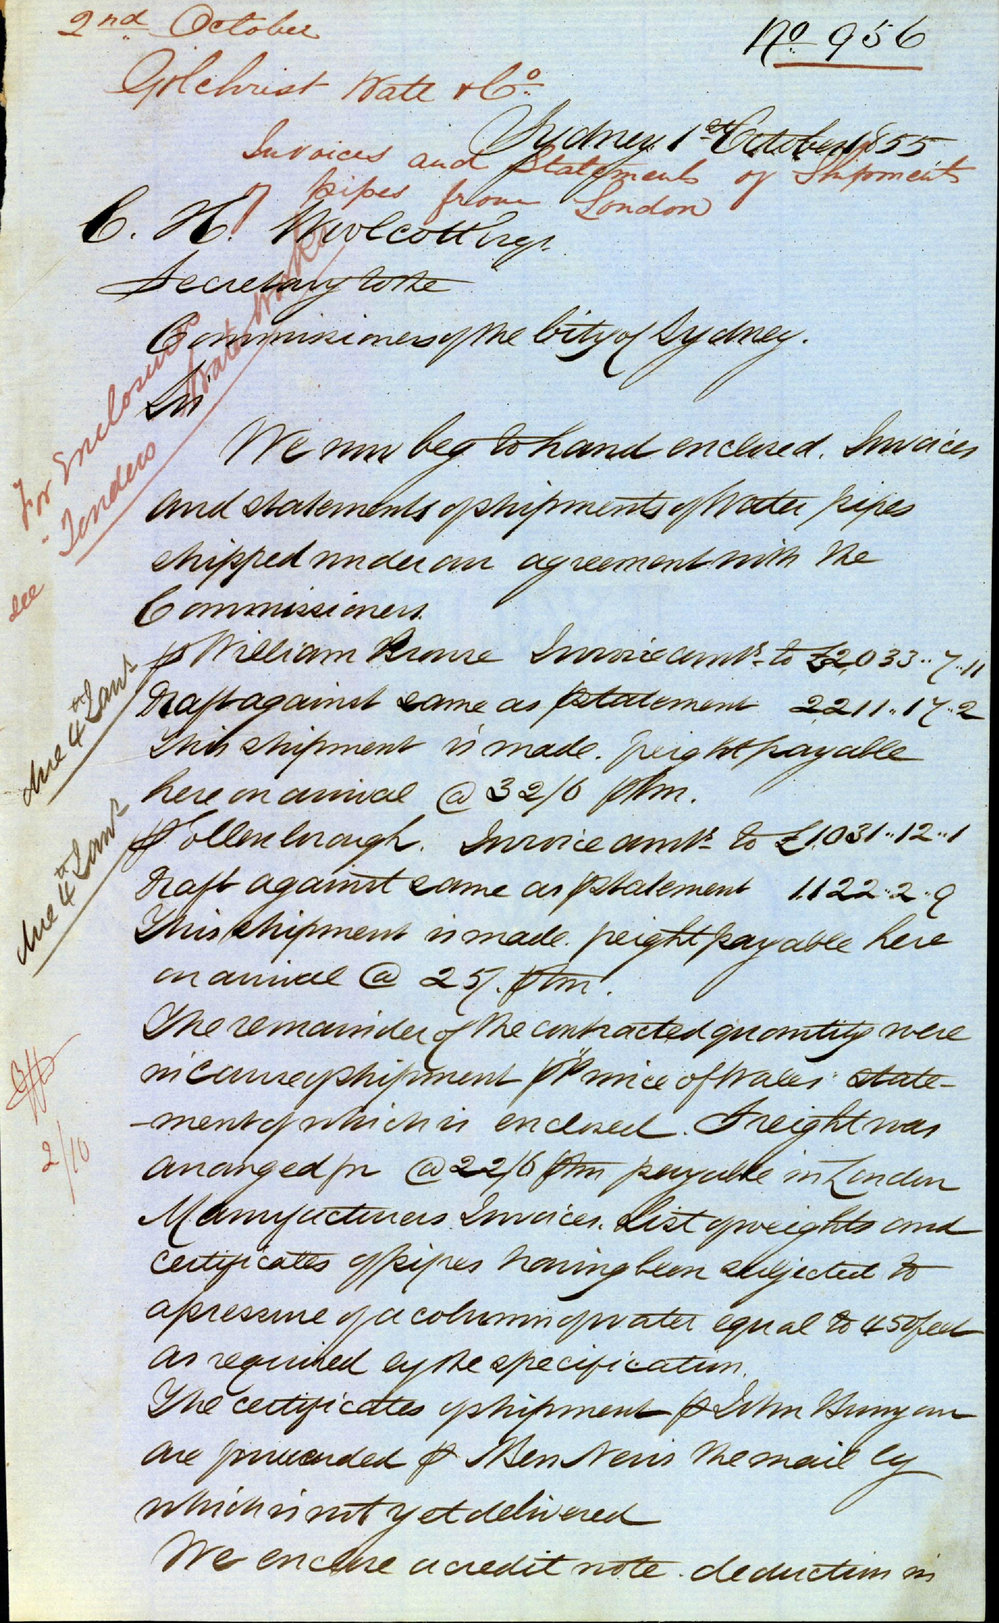 2nd October
No 956
Gilchrist Watt & Co.
Sydney. 1st October 1855
Invoices and Statements of Shipments
of pipes from London
C. H. Woolcott Esqr.
Secretary to the
Commissioners of the City of Sydney.
Sir
For Enclosures
see Tenders Water Works
We now beg to hand enclosed. Invoices
and statements of shipments of Water pipes
shipped under our agreement with the
Commissioners.
p William Invoice amts. to £2,033..7..11
Draft against same as p statement 2211..17..2
due 4th Jany
This shipment is made. freight payable
here on arrival @ 32/6 p ton.
p Ellenborough. Invoice amts. to £1,031..12..1
Draft against same as p statement 1122..2..9
due 4th Jany
This shipment is made. freight payable here
on arrival @ 25/. p ton.
The remainder of the contracted quantity were
in course of shipment p Prince of Wales. state-
-ment of which is enclosed. Freight was
2/10
arranged for @ 22/6 p ton payable in London
Manufacturers Invoices. List of weights and
certificates of pipes having been subjected to
a pressure of a column of water equal to 450 feet
as required by the specification.
The certificates of shipment p John Bunyan
are forwarded p Ben Nevis the mail by
which is not yet delivered
We enclose a credit note. deduction in